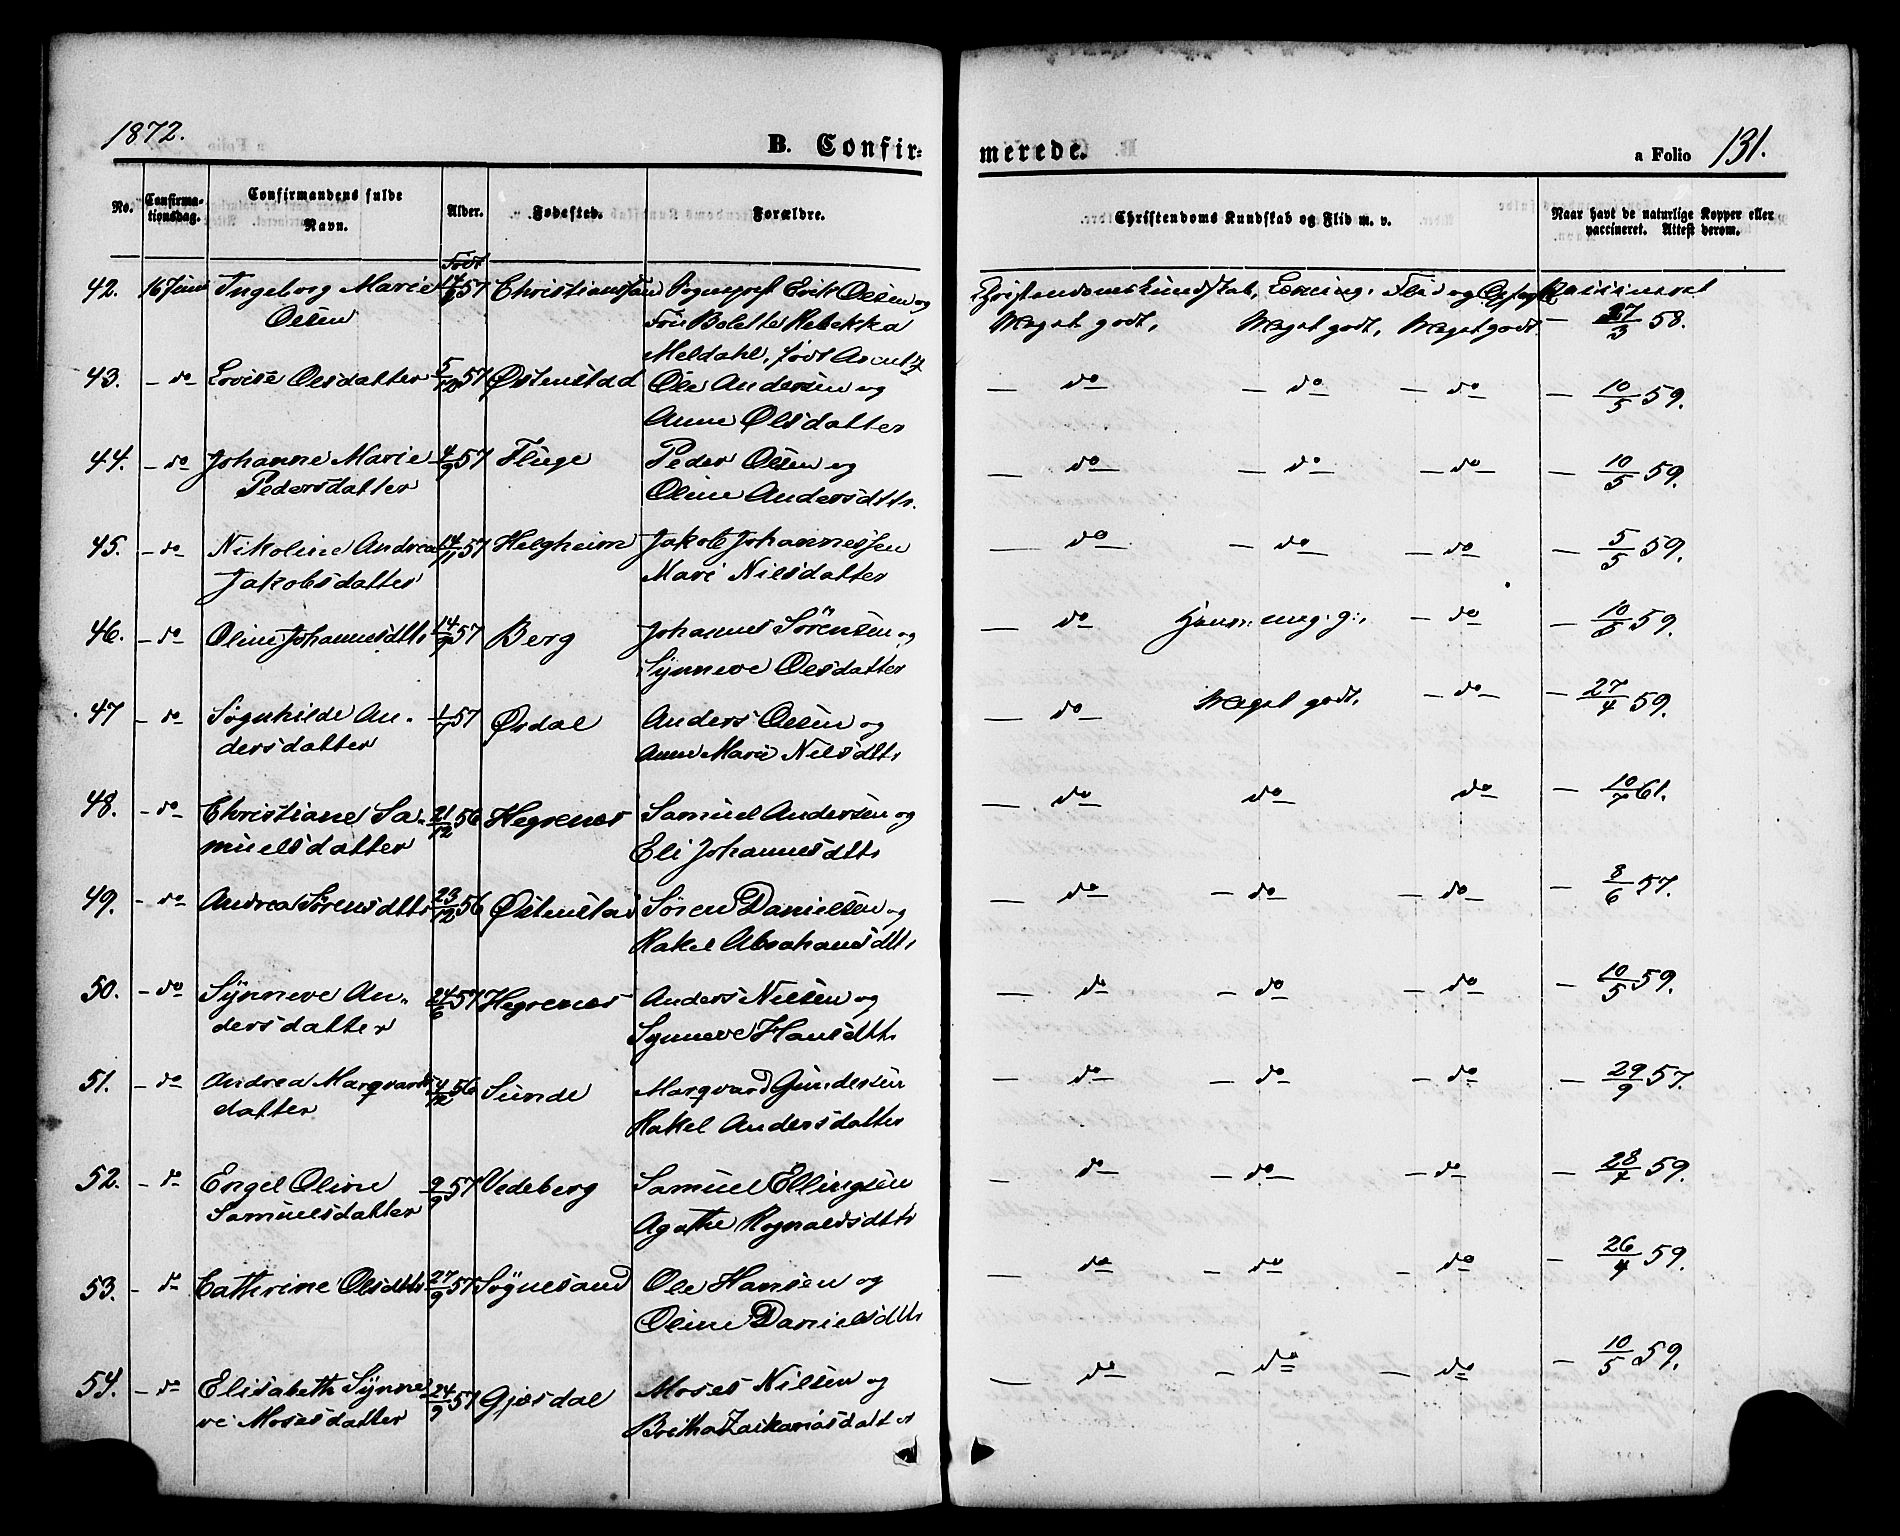 1872.
B. Confir-
merede.
a Folio 131.
No.
Confirma-
tionsdag.
Confirmandens fulde
Navn.
Alder.
Fødested.
Forældre.
Christendoms Kundskab og Flid m. v.
Naar havt de naturlige Kopper eller
vaccineret. Attest derom.
Født
42. 16 Juni Ingeborg Marie 57 Christianssand Sognepræst Erik Olsen og Christendomskundskab, Læsning, Flid og Opførsel Vaccineret
Olsen Frue Bolette Rebekka Meget godt, Meget godt, Meget godt — 58.
Meldahl, født
43. – do Lovise Olsdatter 5/12 57 Østenstad Ole Andersen og — do — — do — — do — — 10/5 59.
Anne Olsdatter
44. – do Johanne Marie 4/9 57 Fluge Peder Olsen og — do — — do — — do — — 10/5 59.
Pedersdatter Oline Andersdttr.
45. – do Nikoline Andrea 14/11 57 Helgheim Jakob Johannessen — do — — do — — do — — 5/5 59.
Jakobsdatter Mari Nilsdatter
46. – do Oline Johannesdttr 14/9 57 Berg Johannes Sørensen og — do — — do — — 10/5 59.
Synneve Olsdatter
47 – do Søgnhilde An- 1/7 57 Ørdal Anders Olsen og — do — Meget godt, — do — — 27/4 59.
dersdatter Anne Marie Nilsdttr
48. – do Christiane Sa- 21/12 56 Hegrenes Samuel Andersen og — do — do do — 10/7 61.
muelsdatter Eli Johannesdttr
49. – do Andrea Sørensdttr 23/12 56 Østenstad Søren Danielsen og — do — — do — — do — — 8/6 57.
Rakel Abrahamsdttr
50. – do Synneve An- 24/6 57 Hegrenes Anders Nilsen og — do — do — — do — — 10/5 59.
dersdatter Synneve Hansdttr
51. – do Andrea Marqvards 4/12 56 Sunde Marqvard Gundersen — do — — do — — do — — 29/9 57.
datter Rakel Andersdatter
52. – do Engel Oline 9/9 57 Vedeberg Samuel Ellingsen — do — — do — — do — — 28/4 59.
Samuelsdatter Agathe Rognaldsdttr
53. – do Cathrine Olsdttr 27/9 57 Søgnesand Ole Hansen og — do — — do — — do — — 26/4 59.
Oline Danielsdttr
54. – do Elisabeth Synne 24/9 57 Gjesdal Moses Nilsen og — do — — do — — do — — 10/5 59.
ve Mosesdatter Britha Zakariasdatter